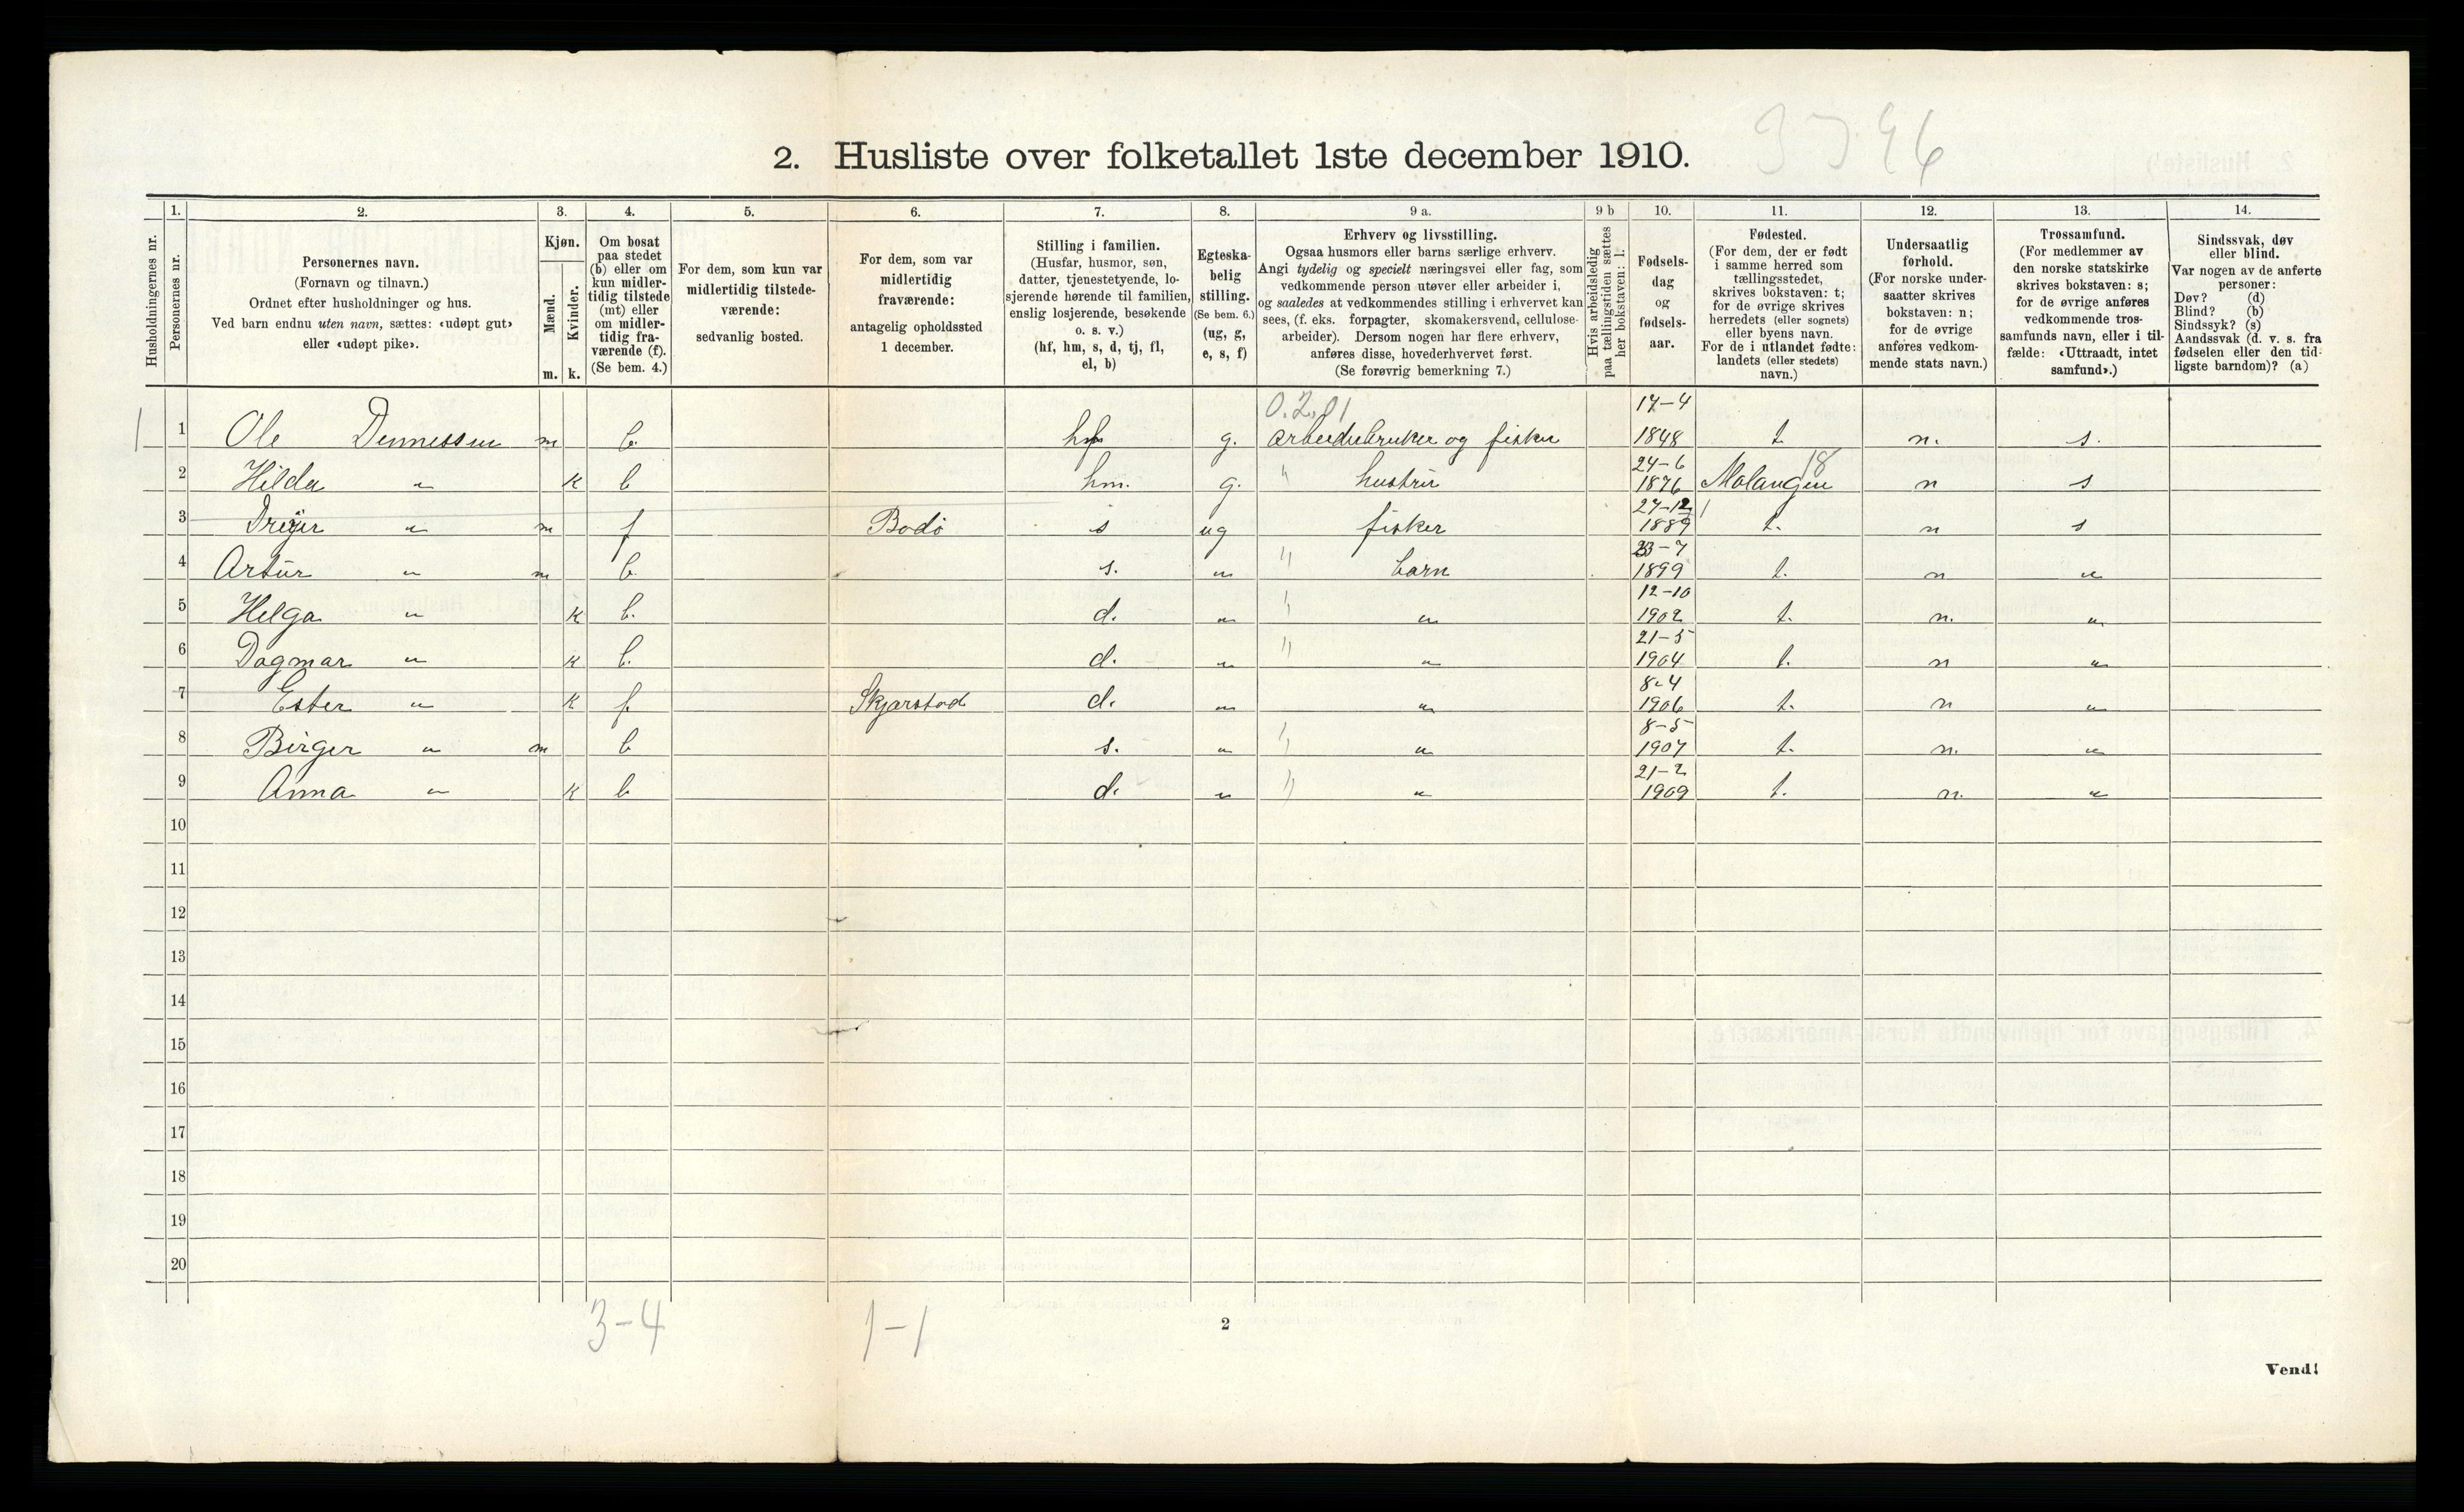 3396
2. Husliste over folketallet 1ste december 1910.
1. 2. 3. 4. 5. 6. 7. 8. 9 a. 9 b 10. 11. 12. 13. 14.
Husholdningernes nr.
Personernes nr.
Personernes navn.
(Fornavn og tilnavn.)
Ordnet efter husholdninger og hus.
Ved barn endnu uten navn, sættes: «udøpt gut»
eller «udøpt pike».
Kjøn.
Mænd.
Kvinder.
m. k.
Om bosat
paa stedet
(b) eller om
kun midler-
tidig tilstede
(mt) eller
om midler-
tidig fra-
værende (f).
(Se bem. 4.)
For dem, som kun var
midlertidig tilstede-
værende:
sedvanlig bosted.
For dem, som var
midlertidig
fraværende:
antagelig opholdssted
1 december.
Stilling i familien.
(Husfar, husmor, søn,
datter, tjenestetyende, lo-
sjerende hørende til familien,
enslig losjerende, besøkende
o. s. v.)
(hf, hm, s, d, tj, fl,
el, b)
Egteska-
belig
stilling.
(Se bem. 6.)
(ug, g,
e, s, f)
Erhverv og livsstilling.
Ogsaa husmors eller barns særlige erhverv.
Angi tydelig og specielt næringsvei eller fag, som
vedkommende person utøver eller arbeider i,
og saaledes at vedkommendes stilling i erhvervet kan
sees, (f. eks. forpagter, skomakersvend, cellulose-
arbeider). Dersom nogen har flere erhverv,
anføres disse, hovederhvervet først.
(Se forøvrig bemerkning 7.)
Hvis arbeidsledig
paa tællingstiden sættes
her bokstaven: l.
Fødsels-
dag
og
fødsels-
aar.
Fødested.
(For dem, der er født
i samme herred som
tællingsstedet,
skrives bokstaven: t;
for de øvrige skrives
herredets (eller sognets)
eller byens navn.
For de i utlandet fødte:
landets (eller stedets)
navn.)
Undersaatlig
forhold.
(For norske under-
saatter skrives
bokstaven: n;
for de øvrige
anføres vedkom-
mende stats navn.)
Trossamfund.
(For medlemmer av
den norske statskirke
skrives bokstaven: s;
for de øvrige anføres
vedkommende tros-
samfunds navn, eller i til-
fælde: «Uttraadt, intet
samfund».)
Sindssvak, døv
eller blind.
Var nogen av de anførte
personer:
Døv? (d)
Blind? (b)
Sindssyk? (s)
Aandssvak (d. v. s. fra
fødselen eller den tid-
ligste barndom)? (a)
0.2.01 17-4
1 1 Ole Dennessen m b. hf g. og fisker 1848 t. n. s.
24-6 18
2 Hilda " k b hm. g. " hustru 1876 Malangen n s
27-12 1
3 Dreyer " m f Bodø s ug fisker 1889 t. n s
23-7
4 Artur " m b. s. " " barn 1899 t. n "
12-10
5 Helga " k b. d. " " " 1902 t. n. "
21-5
6 Dagmar " k b. d. " " " 1904 t. n "
8-4
7 Ester " k f. Skjærstad d. " " 1906 t. n "
8-5
8 Birger " m b s. " " " 1907 t. n. "
21-2
9 Anna " k b d. " " " 1909 t. n. "
10
11
12
13
14
15
16
17
18
19
20
3-4 1-1
2
Vend!